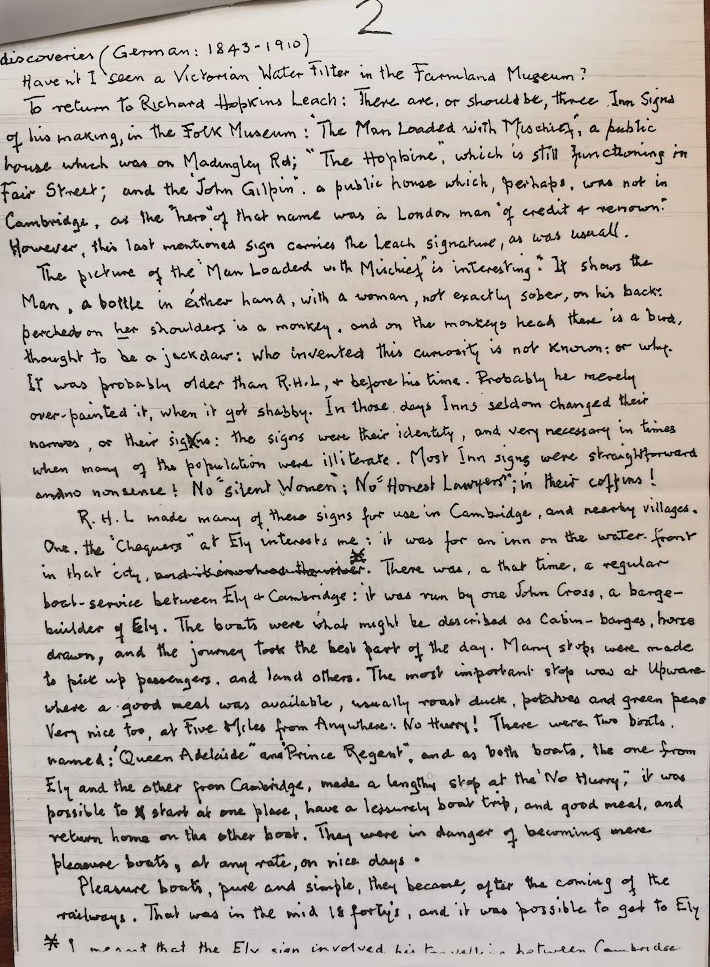 2
discoveries (German: 1843-1910)
Haven't I seen a Victorian Water Filter in the Farmland Museum?
To return to Richard Hopkins Leach: There are, or should be, three Inn Signs
of his making, in the Folk Museum: "The Man Loaded with Mischief", a public
house which was on Madingley Rd; "The Hopbine", which is still functioning in
Fair Street; and the "John Gilpin". a public house which, perhaps, was not in
Cambridge, as the "hero" of that name was a London man "of credit & renown."
However, this last mentioned sign carries the Leach signature, as was usuall.
The picture of the "Man Loaded with Mischief" is interesting: It shows the
Man, a bottle in either hand, with a woman, not exactly sober, on his back:
perched on her shoulders is a monkey. and on the monkeys head there is a bird,
thought to be a jackdaw: who invented this curiosity is not known: or why.
It was probably older than R.H.L, & before his time. Probably he merely
over-painted it, when it got shabby. In those days Inns seldom changed their
names, or their signs: the signs were their identity, and very necessary in times
when many of the population were illiterate. Most Inn signs were straightforward
and no nonsense! No "Silent Women"; No "Honest Lawyers"; in their coffins!
R.H.L made many of these signs for use in Cambridge, and nearby villages.
One, the "Chequers" at Ely interests me: it was for an inn on the water-front
in that city, * . There was, a that time, a regular
boat-service between Ely & Cambridge: it was run by one John Cross, a barge-
builder of Ely. The boats were what might be described as Cabin-barges, horse
drawn, and the journey took the best part of the day. Many stops were made
to pick up passengers, and land others. The most important stop was at Upware
where a good meal was available, usually roast duck, potatoes and green peas
Very nice too, at Five Miles from Anywhere: No Hurry! There were two boats.
named: "Queen Adelaide" and "Prince Regent", and as both boats, the one from
Ely and the other from Cambridge, made a lengthy stop at the "No Hurry," it was
possible to start at one place, have a lesurely boat trip, and good meal, and
return home on the other boat. They were in danger of becoming mere
pleasure boats, at any rate, on nice days.
Pleasure boats, pure and simple, they became, after the coming of the
railways. That was in the mid 18 forty's, and it was possible to get to Ely
* I meant that the Ely sign involved his travelling between Cambridge